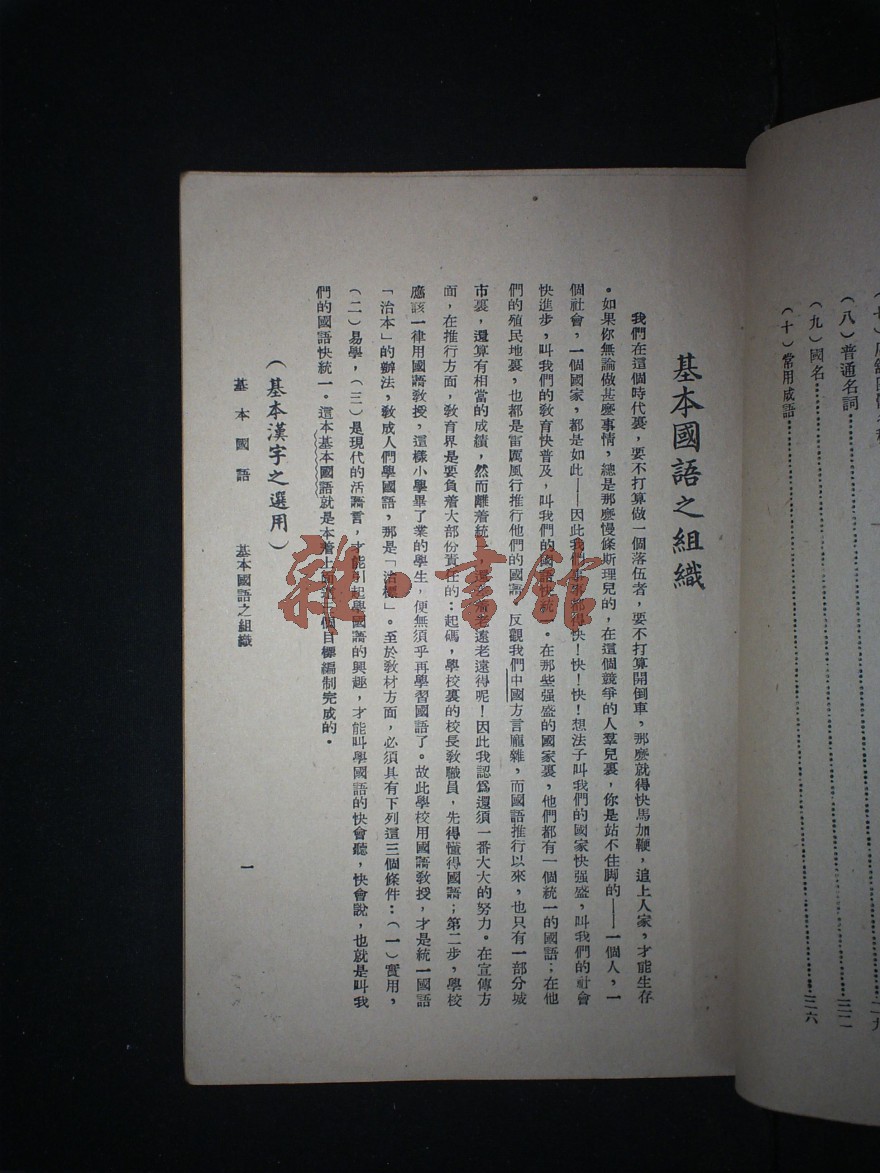 (八)普通名詞……二九
(九)國名……三二
(十)常用成語……三六
基本國語之組織
我們在這個時代裏，要不打算做一個落伍者，要不打算開倒車，那麼就得快馬加鞭，追上人家，才能生存
。如果你無論做甚麼事情，總是那麼慢條斯理兒的，在這個競爭的人羣兒裏，你是站不住脚的——一個人，一
個社會，一個國家，都是如此——因此我們都得快！快！快！想法子叫我們的國家快强盛，叫我們的社會
快進步，叫我們的敎育快普及，叫我們的國語快統一。在那些强盛的國家裏，他們都有一個統一的國語；在他
們的殖民地裏，也都是雷厲風行推行他們的國語。反觀我們中國方言龐雜，而國語推行以來，也只有一部分城
市裏，還算有相當的成績，然而離着統一，老遠老遠得呢！因此我認爲還須一番大大的努力。在宣傳方
面，在推行方面，敎育界是要負着大部份責任的：起碼，學校裏的校長敎職員，先得懂得國語；第二步，學校
應該一律用國語敎授，這樣小學畢了業的學生，便無須乎再學習國語了。故此學校用國語敎授，才是統一國語
「治本」的辦法，敎成人們學國語，那是「治標」。至於敎材方面，必須具有下列這三個條件：(一)實用，
(二)易學，(三)是現代的活語言，才能引起學國語的興趣，才能叫學國語的快會聽，快會說，也就是叫我
們的國語快統一。這本基本國語就是本着上面這三個目標編制完成的。
(基本漢字之選用)
基本國語 基本國語之組織 一
雜·書館